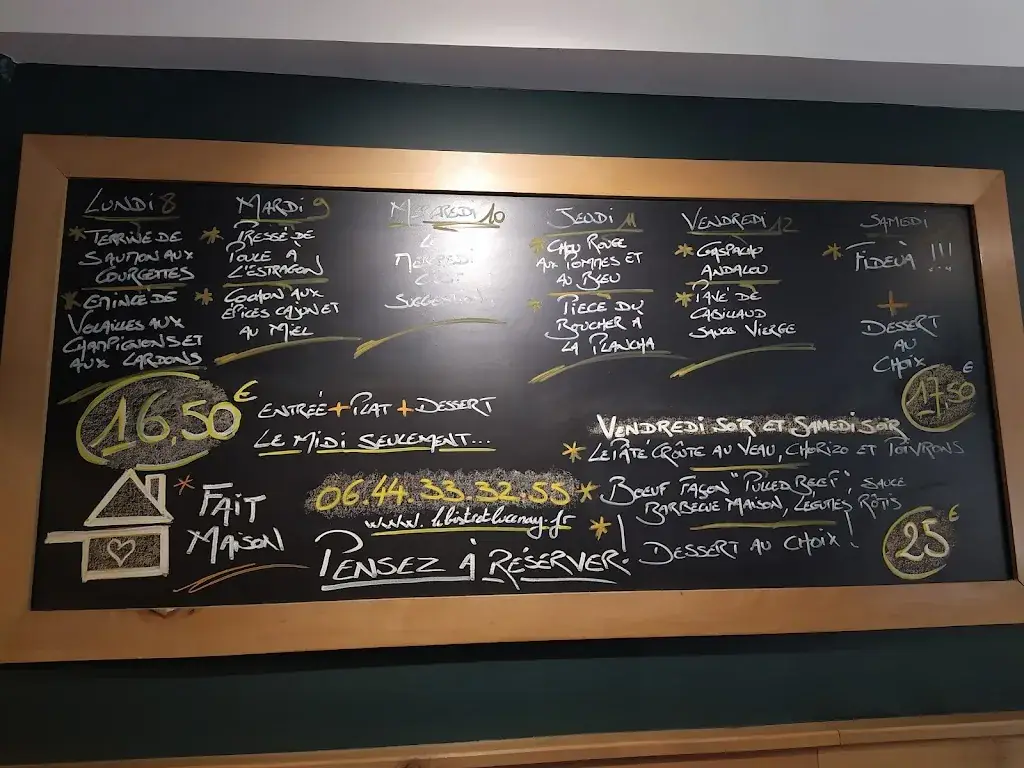 LUNDI 8
* TERRINE DE
SAUMON AUX
COURGETTES
* EMINCÉ DE
VOLAILLES AUX
CHAMPIGNONS ET
AUX LARDONS
MARDI 9
* PRESSÉ DE
POULE À
L'ESTRAGON
* COCHON AUX
ÉPICES CAJUN ET
AU MIEL
MERCREDI 10
LE
MERCREDI
C'EST
SUGGESTION
JEUDI 11
* CHOU ROUGE
AUX POMMES ET
AU BLEU
* PIÈCE DU
BOUCHER À
LA PLANCHA
VENDREDI 12
* GASPACHO
ANDALOU
* PAVÉ DE
CABILLAUD
SAUCE VIERGE
SAMEDI
* FIDEUÀ !!!
+
DESSERT
AU
CHOIX
17,50 €
16,50 €
ENTRÉE + PLAT + DESSERT
LE MIDI SEULEMENT...
* FAIT
MAISON
06.44.33.32.55
www.lebistrotlucenay.fr
PENSEZ À RÉSERVER!
VENDREDI SOIR ET SAMEDI SOIR
* LE PÂTÉ CROÛTE AU VEAU, CHORIZO ET POIVRONS
* BOEUF FAÇON "PULLED BEEF", SAUCE
BARBECUE MAISON, LÉGUMES RÔTIS
* DESSERT AU CHOIX!
25 €